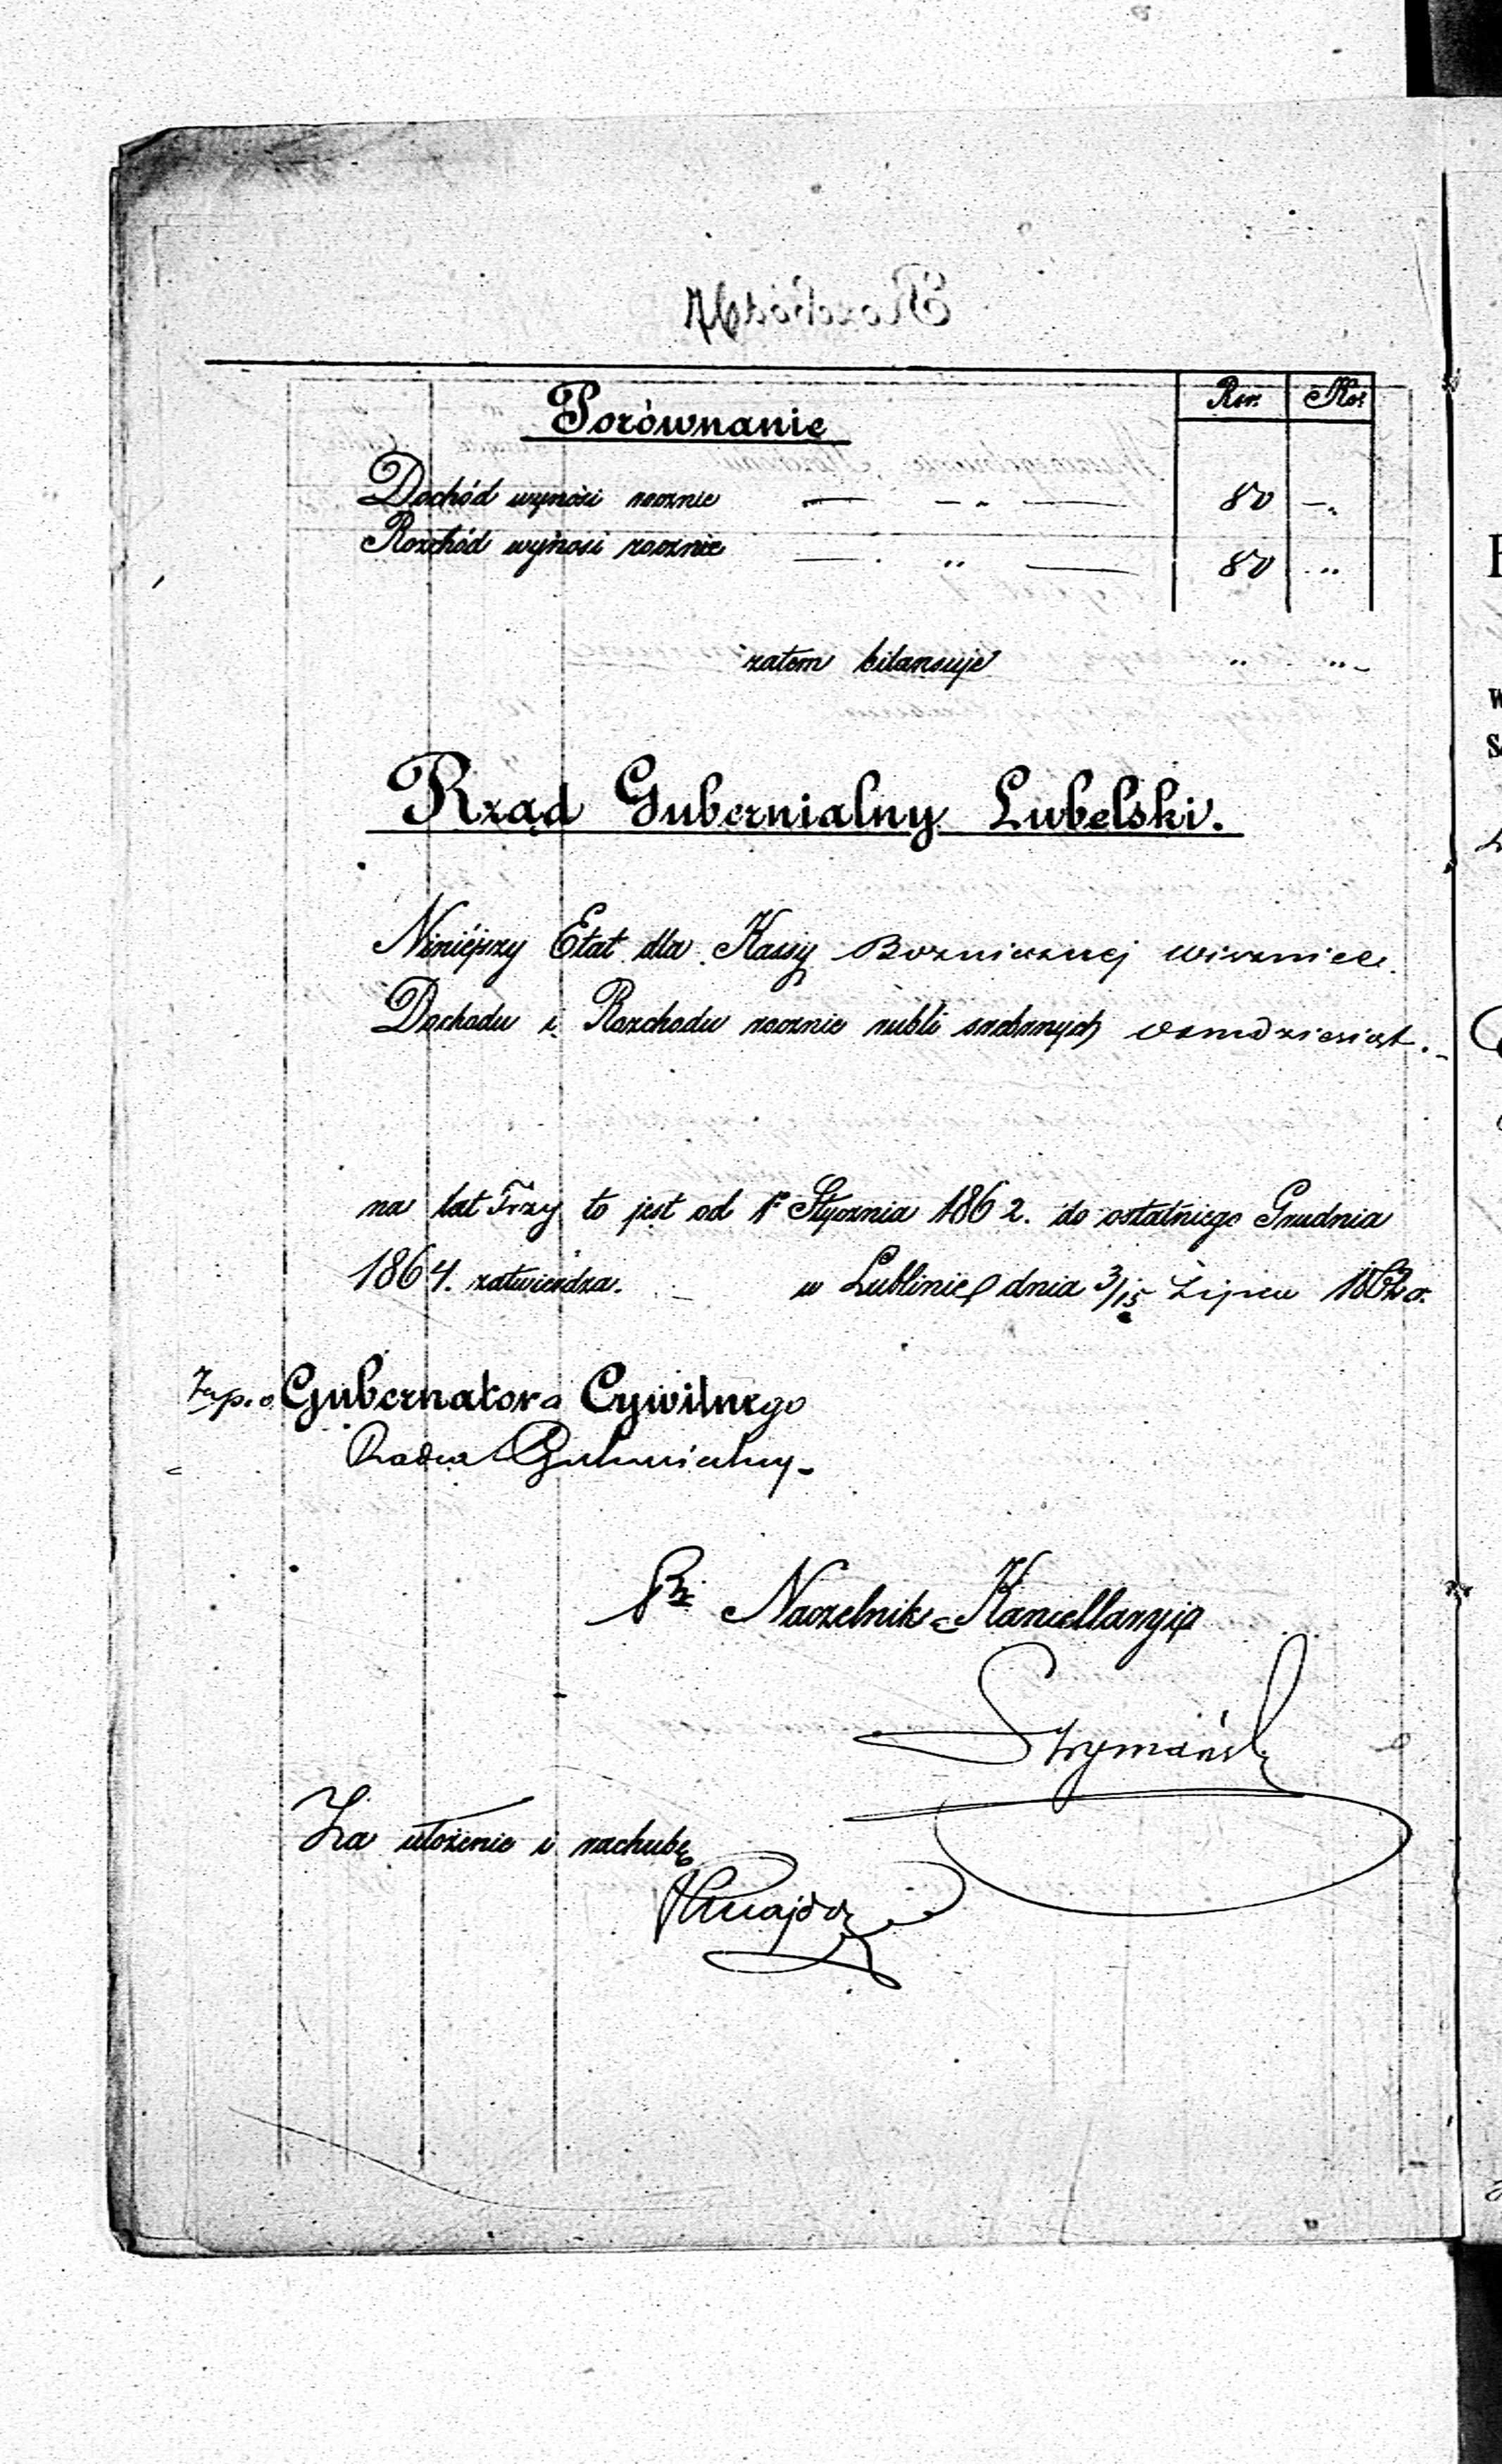 Porównanie
Rsr. Kop.
Dochód wynosi rocznie — - „ — 80 -„
Rozchód wynosi rocznie — „ — 80 „
zatem bilansuje „ „ -
Rząd Gubernialny Lubelski.
Niniéjszy Etat dla Kassy Boznicznej
Dochodu i Rozchodu rocznie rubli srebrnych osmdziesiąt. -
na lat Trzy to jest od 1º Stycznia 1862. do ostatniego Grudnia
1864. zatwierdza. w Lublinie dnia 3/15 Lipca r.
Gubernatora Cywilnego
Radca Gubernialny -
Naczelnik Kancellaryi
Szymańsk
Za ułożenie i rachubę